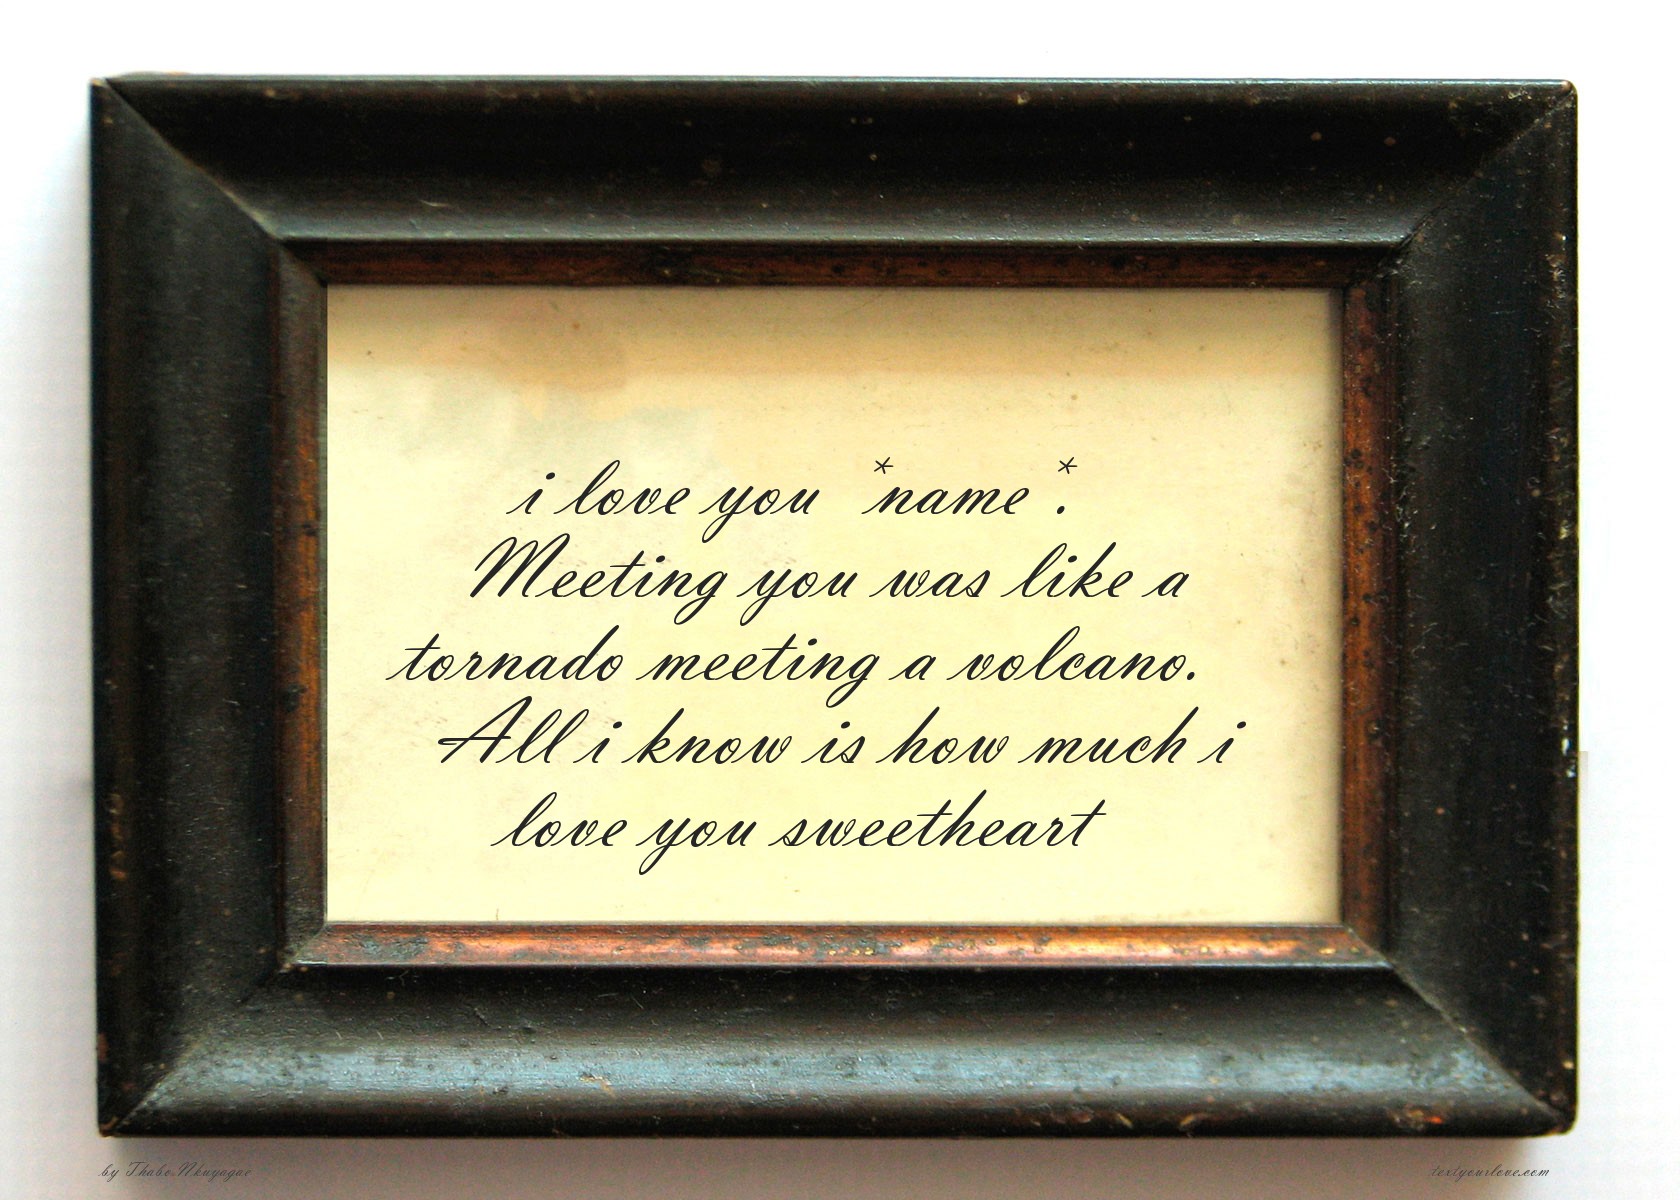 i love you *name*.
Meeting you was like a
tornado meeting a volcano.
All i know is how much i
love you sweetheart
by Thabo
textyourlove.com